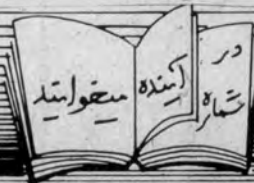 در
شماره
آینده
میخوانید